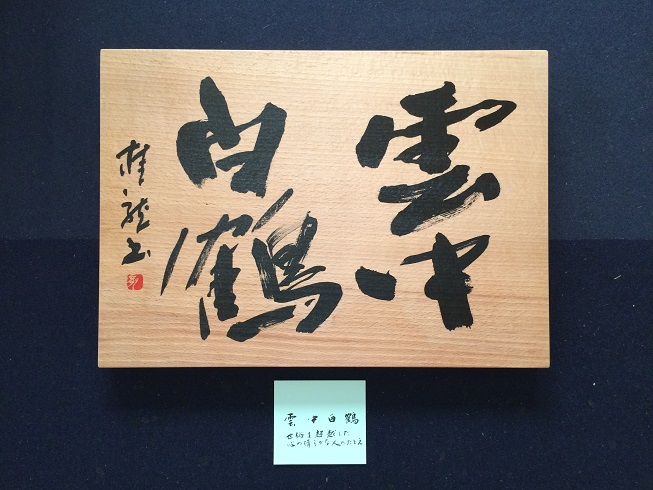 雲中
白鶴
桂龍書
雲中白鶴
世俗を超越した
心の清らかな人のたとえ